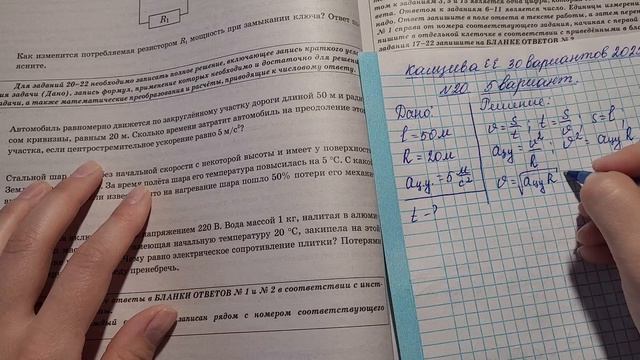 R₁
Как изменится потребляемая резистором R₁ мощность при замыкании ключа? Ответ
ясните.
Для заданий 20–22 необходимо записать полное решение, включающее запись краткого
задачи (Дано), запись формул, применение которых необходимо и достаточно для
а также математические преобразования и расчёты, приводящие к числовому ответу.
Автомобиль равномерно движется по закруглённому участку дороги длиной 50 м и
сом кривизны, равным 20 м. Сколько времени затратит автомобиль на преодоление
участка, если центростремительное ускорение равно 5 м/с²?
Стальной шар без начальной скорости с некоторой высоты и имеет у поверхности
Зем За время полёта шара его температура повысилась на 5 °С. С
на нагревание шара пошло 50% потери его
напряжением 220 В. Вода массой 1 кг, налитая в
имеющая начальную температуру 20 °С, закипела на этой
Чему равно электрическое сопротивление плитки?
пренебречь.
ответы в БЛАНКИ ОТВЕТОВ № 1 и № 2 в соответствии с
записан рядом с номером соответствующего
ответа. Ответом к заданиям 6–11 является число. Единицы
надо. Ответ запишите в поле ответа в тексте работы, а затем
№ 1 справа от номера соответствующего задания, начиная с первой
в отдельной клеточке в соответствии с приведёнными в
задания 17–22 запишите на БЛАНКЕ ОТВЕТОВ № 2
Камзеева ЕЕ 30 вариантов
№20 5 вариант.
Дано:
l = 50м
R = 20м
aц.у. = 5 м/с²
t - ?
Решение:
υ = S/t ; t = S/υ ; S = l ;
aцу = υ²/R ; υ² = aцу R
υ = √aцу R